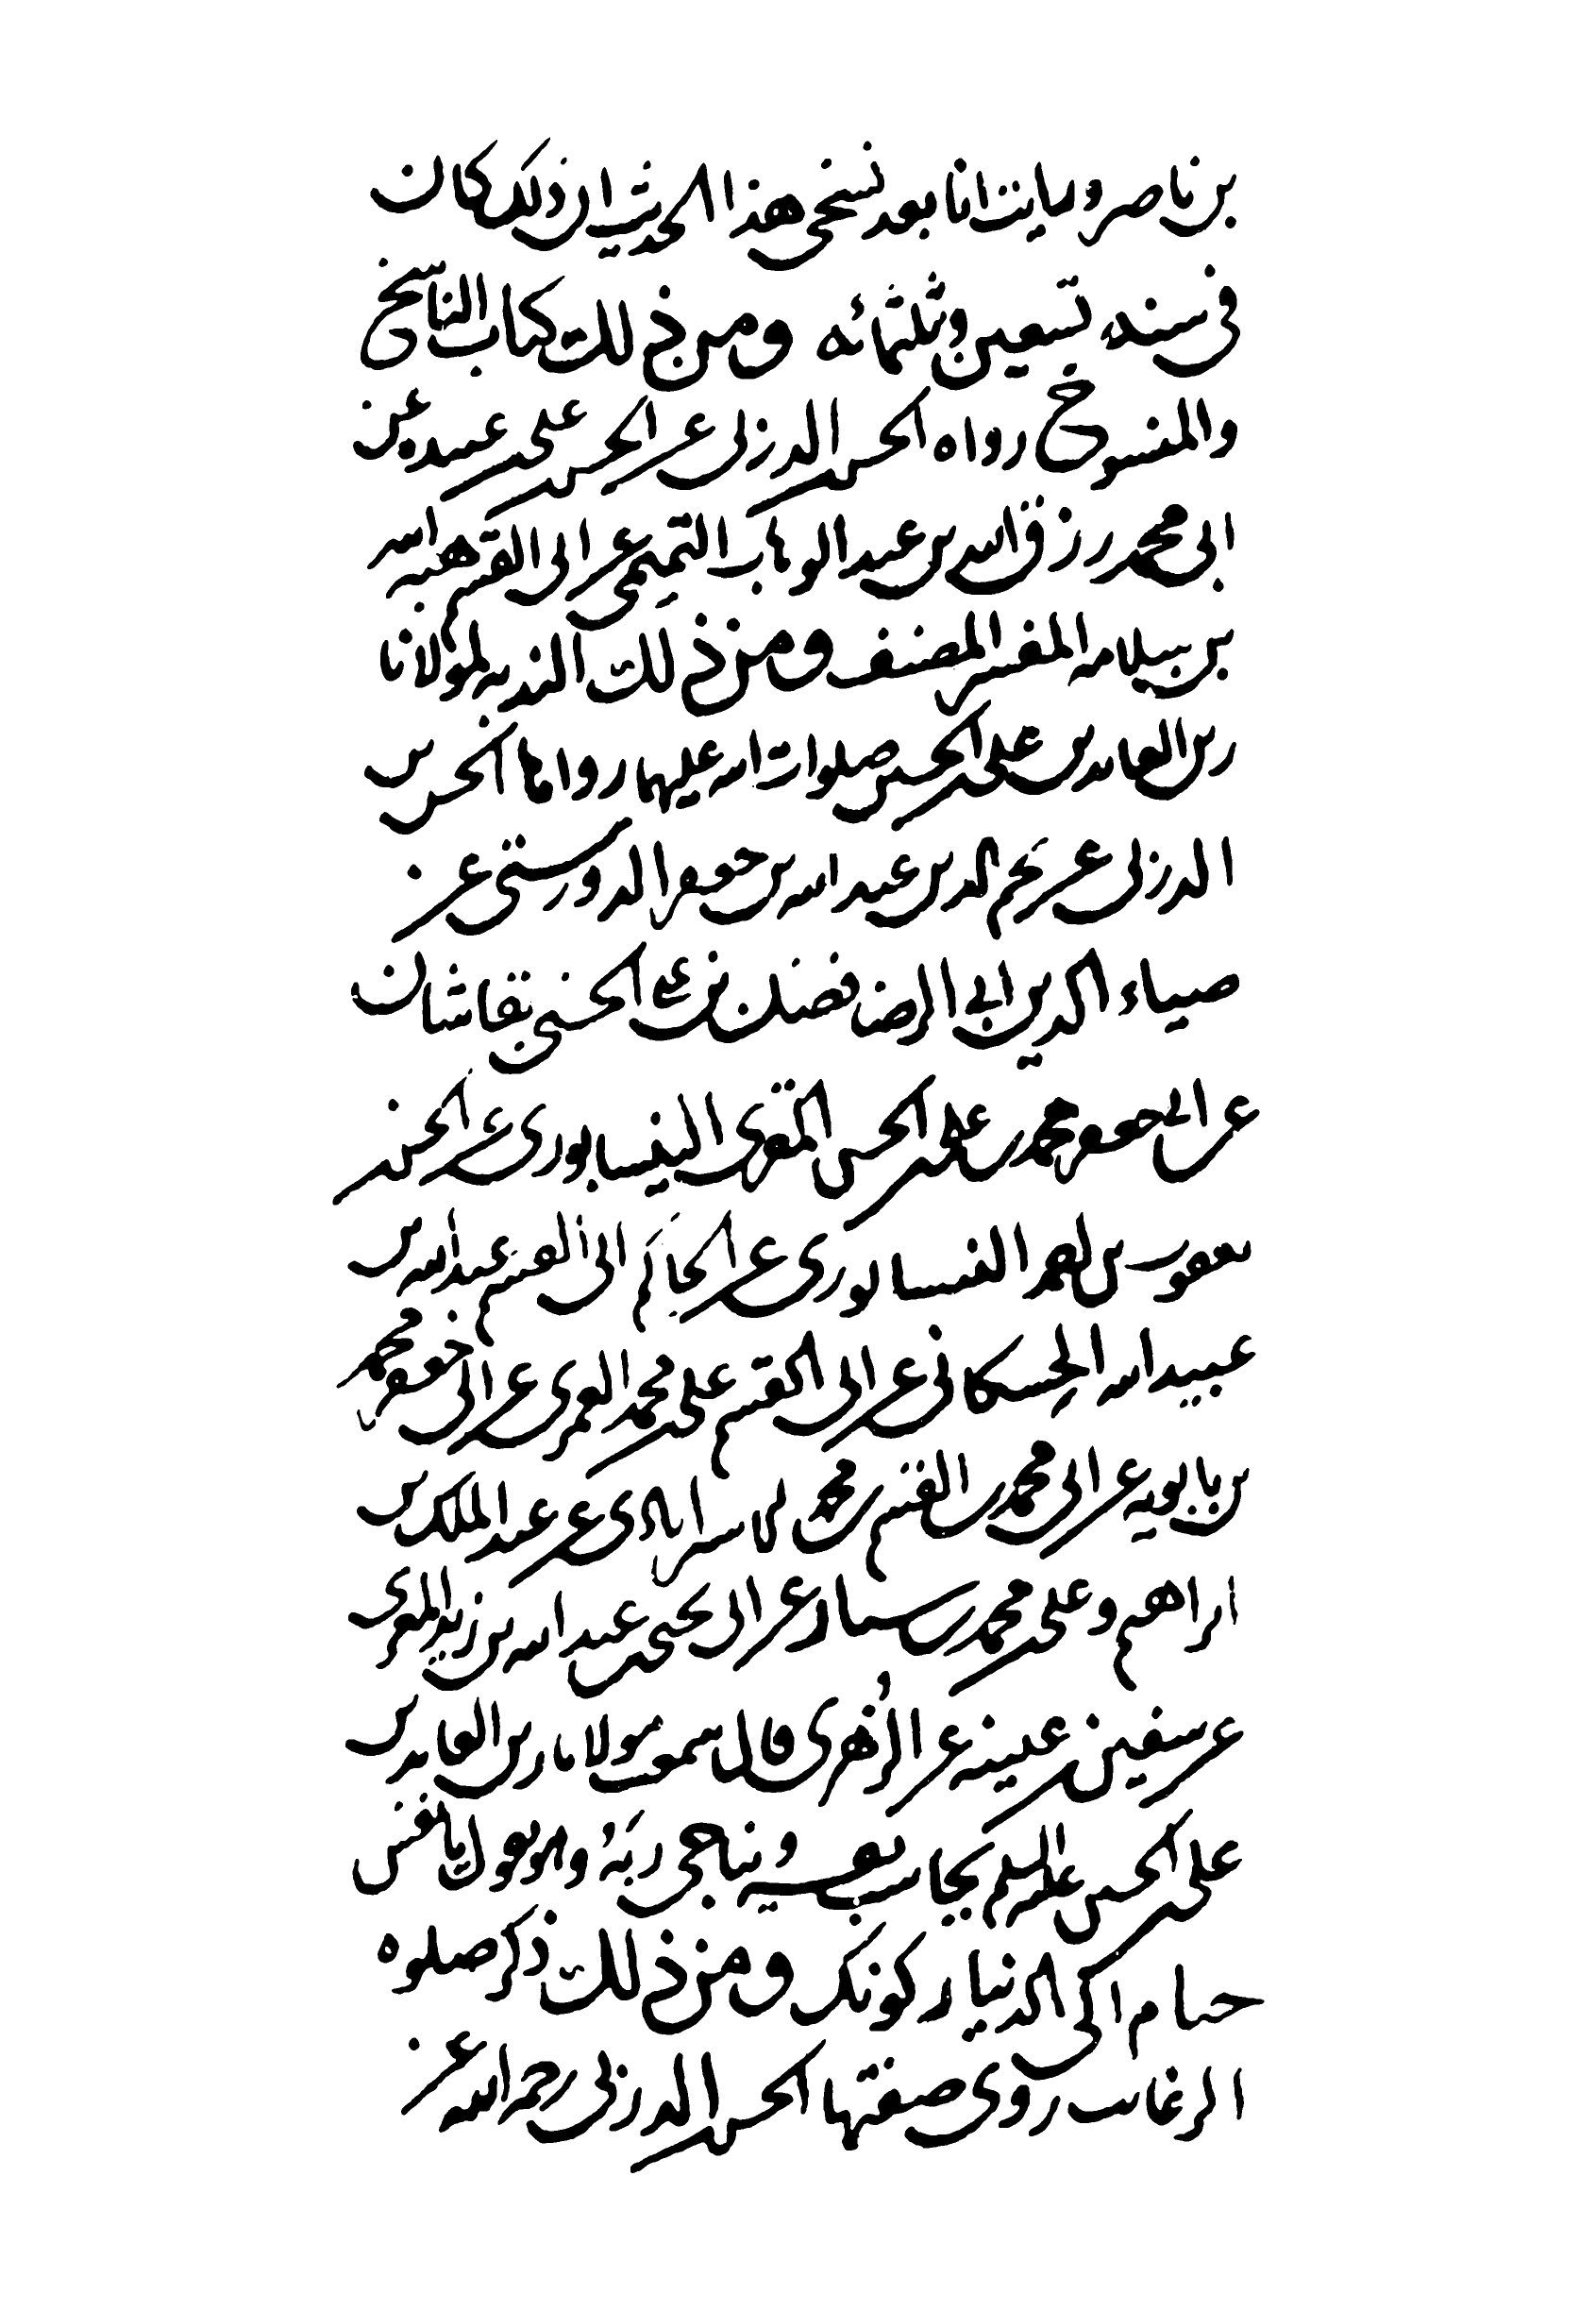 بن ناصر ورايت انا بعد نسخي هذا الحديث ان ذلك كان
في سنه تسعين وثلثمائه ومن ذلك كتاب الناسخ
والمنسوخ رواه الحسن الدرزي عن الحسن علي عبيد عن
ابي محمد رزق الله بن عبد الوهاب التميمي عن ابي القسم هبة الله
بن سلامه المفسر المصنف ومن ذلك الندبه لمولانا
زين العابدين علي الحسين صلوات الله عليهما رواها الحسن بن
الدرزي عن نجم الدين عبد الله بن جعفر الدورستي عن
ضياء الدين ابي الرضا فضل الله بن علي الحسني بقاشان
عن ابي جعفر محمد بن علي الحسن المقرى النيسابوري عن الحسن
يعقوب بن احمد النيسابوري عن الحاكم ابي القسم عبد الله بن
عبيد الله الحسكاني عن ابي القسم علي محمد العمري عن ابي جعفر محمد
بن بابويه عن ابي محمد بن القسم محمد الاسترابادي عن عبد الملك بن
ابراهيم وعلي محمد بن سيار عن ابي يحيى بن عبد الله بن زيد المقرى
عن سفين بن عيينه عن الزهري قال سمعت مولانا زين العابدين
علي الحسين عليه السلم يحاسب نفسه ويناجي ربه وهو يقول يا نفس
حتام الى الدنيا ركونك ومن ذلك ذكر صلوه
الرغائب روى صفتها الحسن الدرزي رحمه الله عن